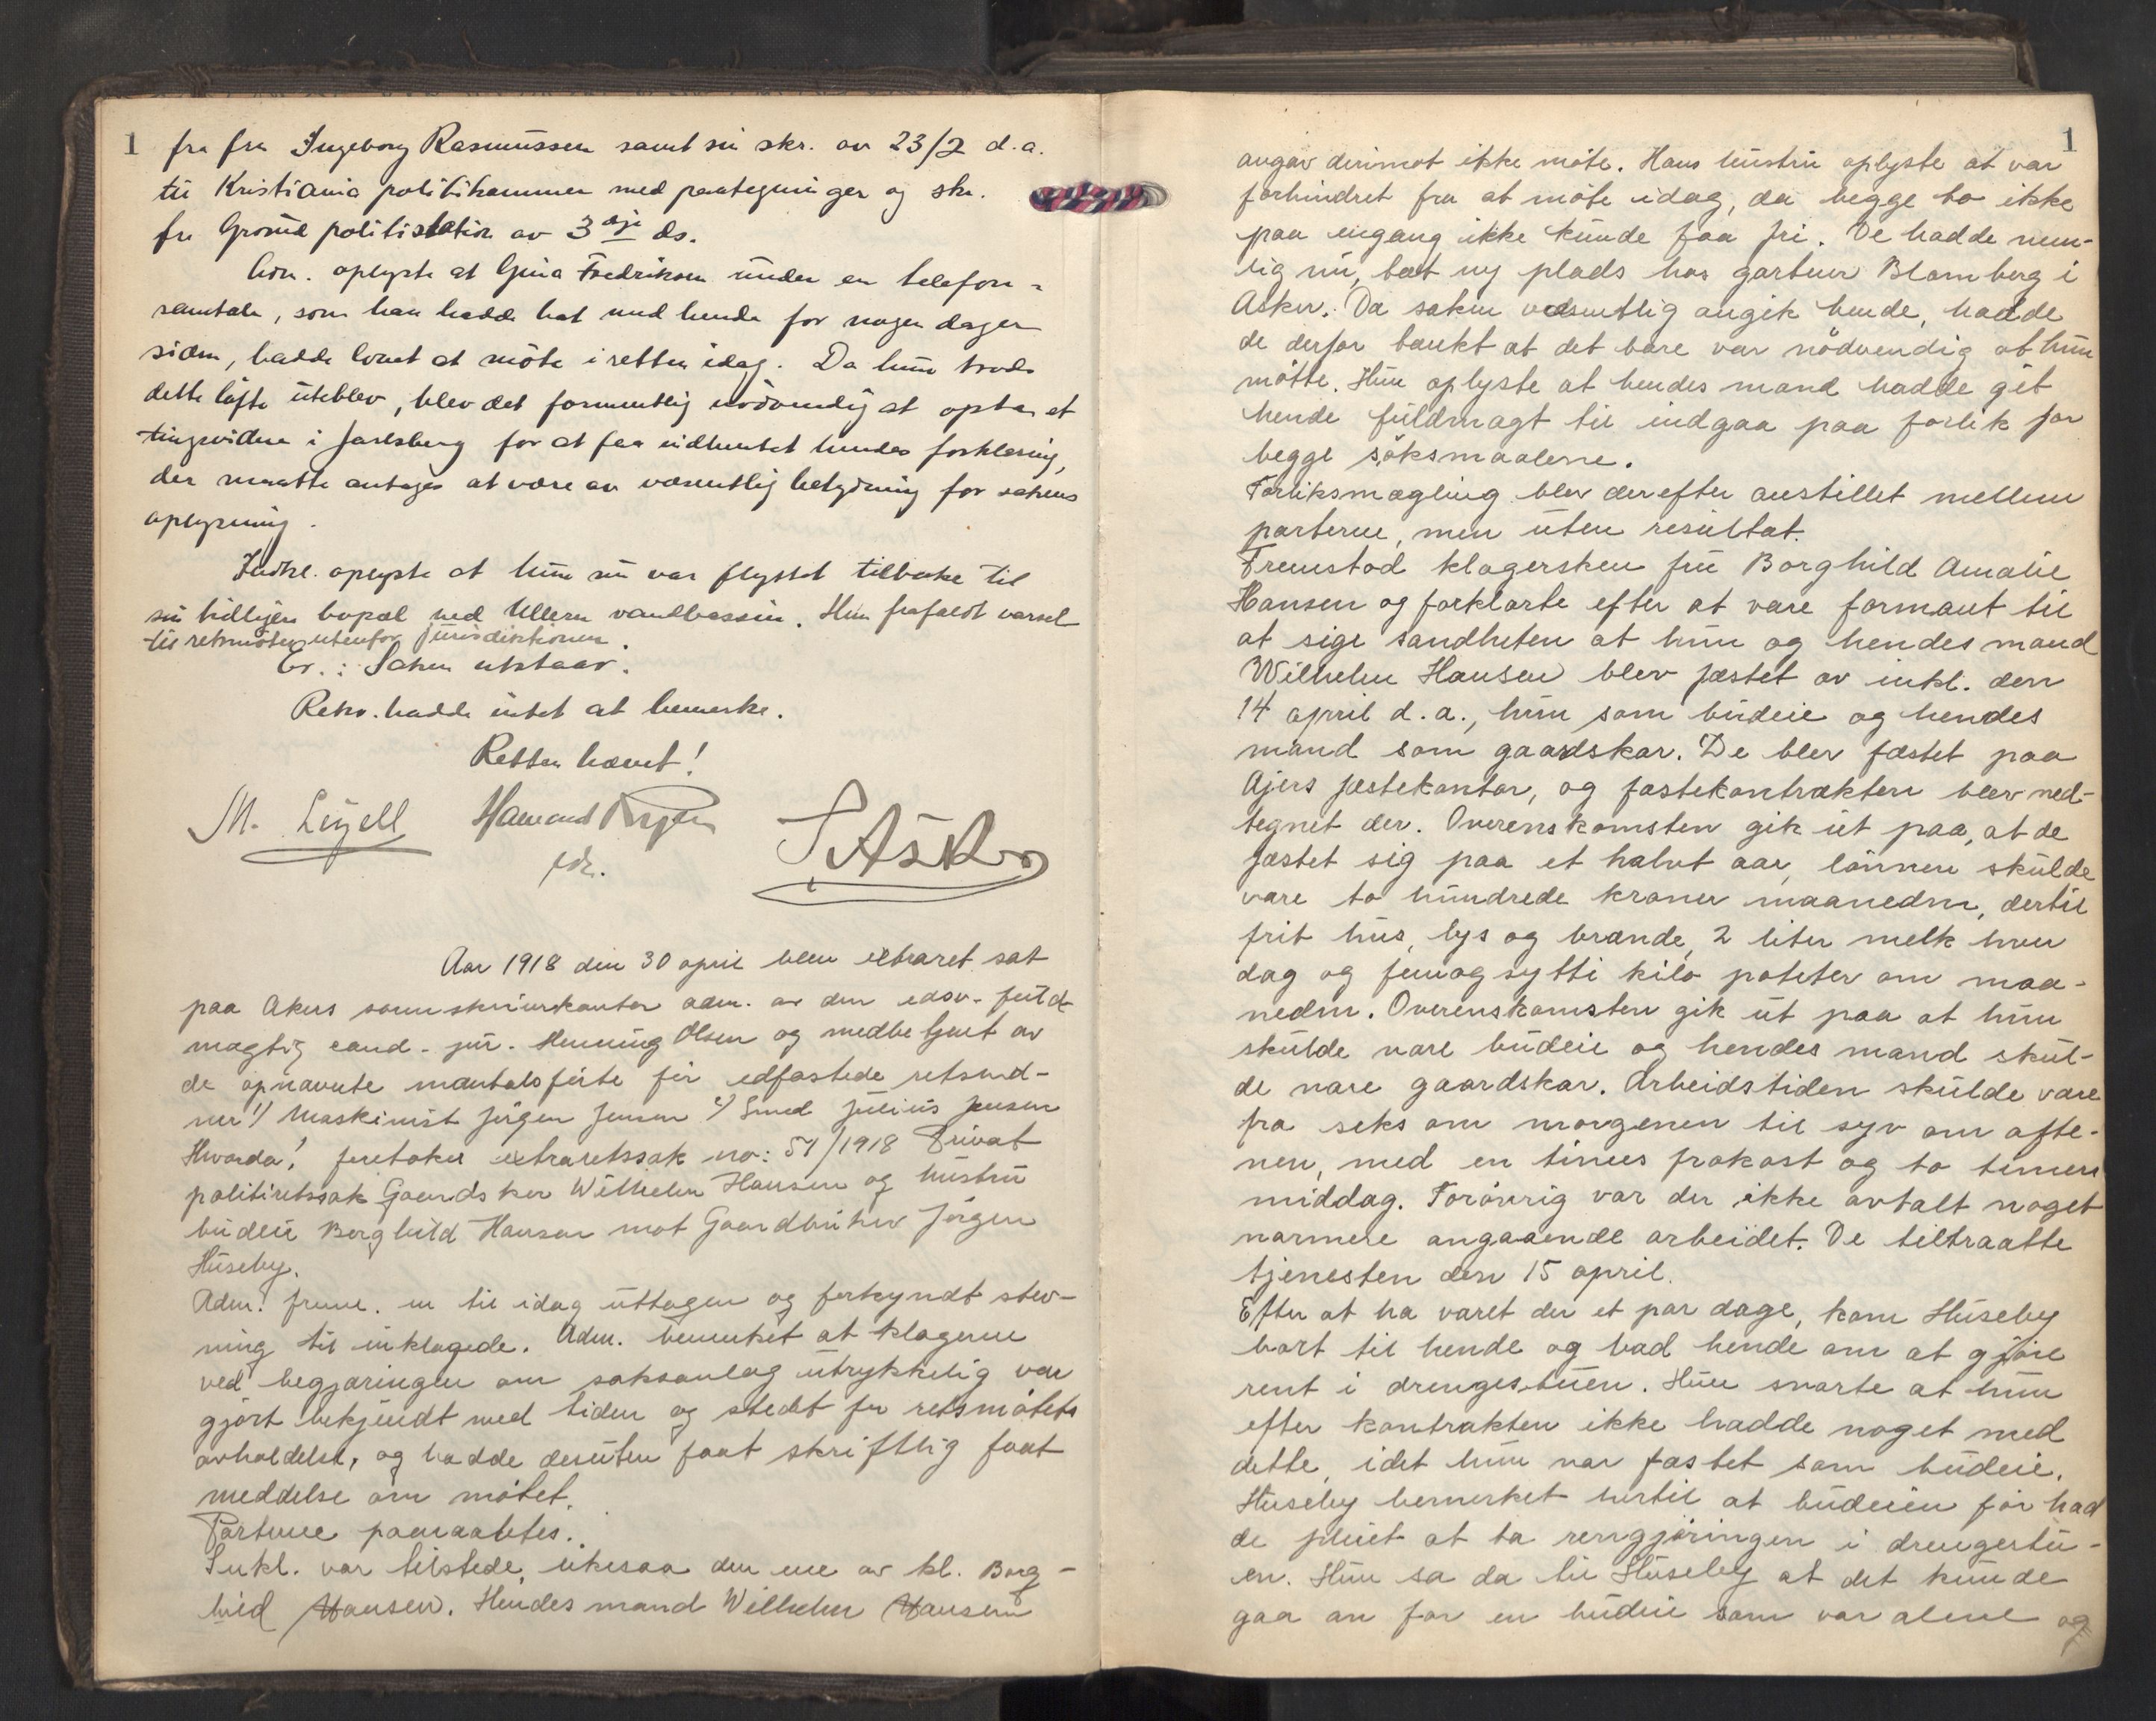 1 fra fru Ingeborg Rasmussen samt sin skr. av 23/2 d.a.
til Kristiania politikammer med paategninger og skr.
fra Grorud politistation av 3dje ds.
Adm. oplyste at Gina Fredriksen under en telefon-
samtale, som han hadde hat med hende for nogen dager
siden, hadde lovet at möte i retten idag. Da hun trods
dette löfte uteblev, blev det formentlig nödvendig at opta et
tingsvidne i Jarlsberg for at faa indhentet hendes forklaring,
der maatte antages at være av væsentlig betydning for sakens
oplysning.
Indkl. oplyste at hun nu var flyttet tilbake til
sin tidligere bopæl ved Ullern vandbassin. Hun frafaldt varsel
til retsmöter utenfor jurisdiktionen.
Er.: Saken utstaar.
Retsv. hadde intet at bemerke.
Retten hævet!
M. Leyell
Aar 1918 den 30 april blev extraret sat
paa Akers sorenskriverkontor adm. av den edsv. fuld-
mægtig cand. jur. Henning Olsen og medbetjent av
de opnævnte mantalsförte før edfæstede retsvid-
ner 1) Maskinist Jörgen Jensen 2) Smed Julius Jensen
Hvorda! foretokes extraretssak no: 51/1918 Privat
politiretssak Gaardskar Wilhelm Hansen og hustru
budeie Borghild Hansen mot Gaardbruker Jörgen
Huseby.
Adm. frem. en til idag uttagen og forkyndt stev-
ning til inklagede. Adm. bemerket at klagerne
ved begjæringen om saksanlæg utrykkelig var
gjört bekjendt med tiden og stedet for retsmötets
avholdelse, og hadde desuten faat skriftlig faat
meddelse om mötet.
Parterne paaraabtes.
Inkl. var tilstede, likesaa den ene av kl. Borg-
hild Hansen. Hendes mand Wilhelm Hansen
1
angav derimot ikke möte. Hans hustru oplyste at var
forhindret fra at möte idag, da begge to ikke
paa engang ikke kunde faa fri. De hadde nem-
lig nu, tat ny plads hos gartner Blomberg i
Asker. Da saken vesentlig angik hende, hadde
de derfor tænkt at det bare var nödvendig at hun
mötte. Hun oplyste at hendes mand hadde git
hende fuldmagt til indgaa paa forlik for
begge söksmaalene.
Forliksmægling blev derefter anstillet mellem
parterne, men uten resultat.
Fremstod klagersken fru Borghild Amalie
Hansen og forklarte efter at være formant til
at sige sandheten at hun og hendes mand
Wilhelm Hansen blev fæstet av inkl. den
14 april d.a., hun som budeie og hendes
mand som gaardskar. De blev fæstet paa
Ajers fæstekontor, og fæstekontrakten blev ned-
tegnet der. Overenskomsten gik ut paa, at de
fæstet sig paa et halvt aar, lönnen skulde
være to hundrede kroner maaneden, dertil
frit hus, lys og brænde, 2 liter melk hver
dag og femogsytti kilo poteter om maa-
neden. Overenskomsten gik ut paa at hun
skulde være budeie og hendes mand skul-
de være gaardskar. Arbeidstiden skulde være
fra seks om morgenen til syv om afte-
nen, med en times frokost og to timers
middag. Forövrig var der ikke avtalt noget
nærmere angaaende arbeidet. De tiltraatte
tjenesten den 15 april.
Efter at ha været der et par dage, kom Huseby
bort til hende og bad hende om at gjöre
rent i drengestuen. Hun svarte at hun
efter kontrakten ikke hadde noget med
dette, idet hun var fæstet som budeie.
Huseby bemerket hertil at budeien för had
de pleiet at ta rengjöringen i drengestu-
en. Hun sa da til Huseby at det kunde
gaa an for en budeie som var alene og